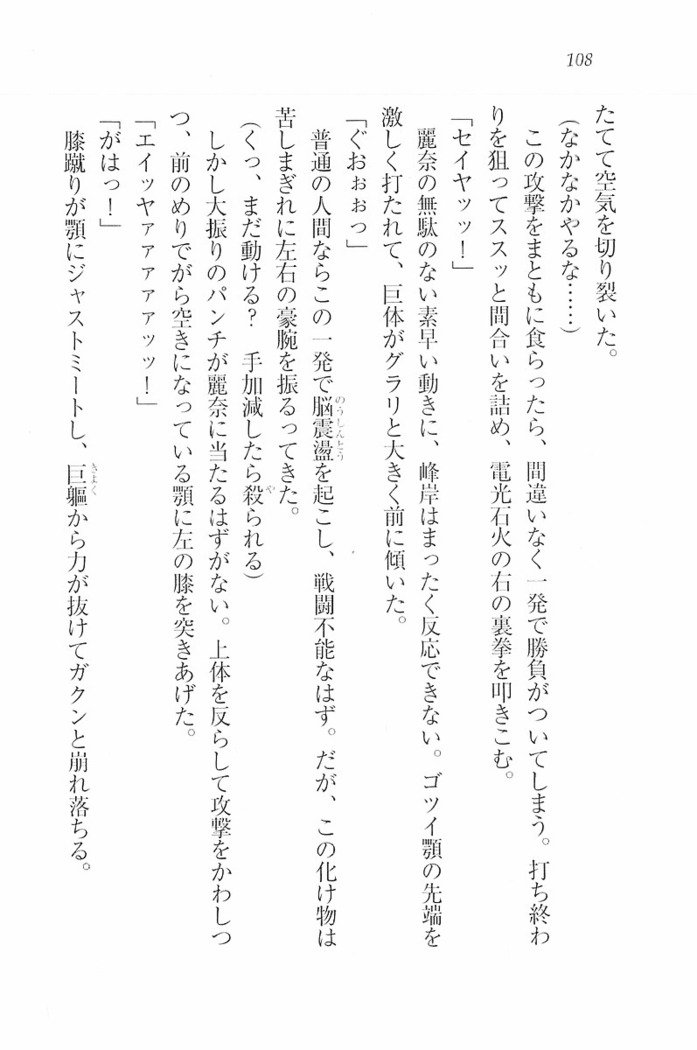 108
たてて空気を切り裂いた。
(なかなかやるな……)
この攻撃をまともに食らったら、間違いなく一発で勝負がついてしまう。打ち終わ
りを狙ってススッと間合いを詰め、電光石火の右の裏拳を叩きこむ。
「セイヤッッ！」
麗奈の無駄のない素早い動きに、峰岸はまったく反応できない。ゴツイ顎の先端を
激しく打たれて、巨体がグラリと大きく前に傾いた。
「ぐおぉぉっ」
普通の人間ならこの一発で脳震盪を起こし、戦闘不能なはず。だが、この化け物は
のうしんとう
苦しまぎれに左右の豪腕を振るってきた。
(くっ、まだ動ける？　手加減したら殺られる)
や
しかし大振りのパンチが麗奈に当たるはずがない。上体を反らして攻撃をかわしつ
つ、前のめりでがら空きになっている顎に左の膝を突きあげた。
「エイッヤァァァァッッ！」
「がはっ！」
膝蹴りが顎にジャストミートし、巨軀から力が抜けてガクンと崩れ落ちる。
きよく